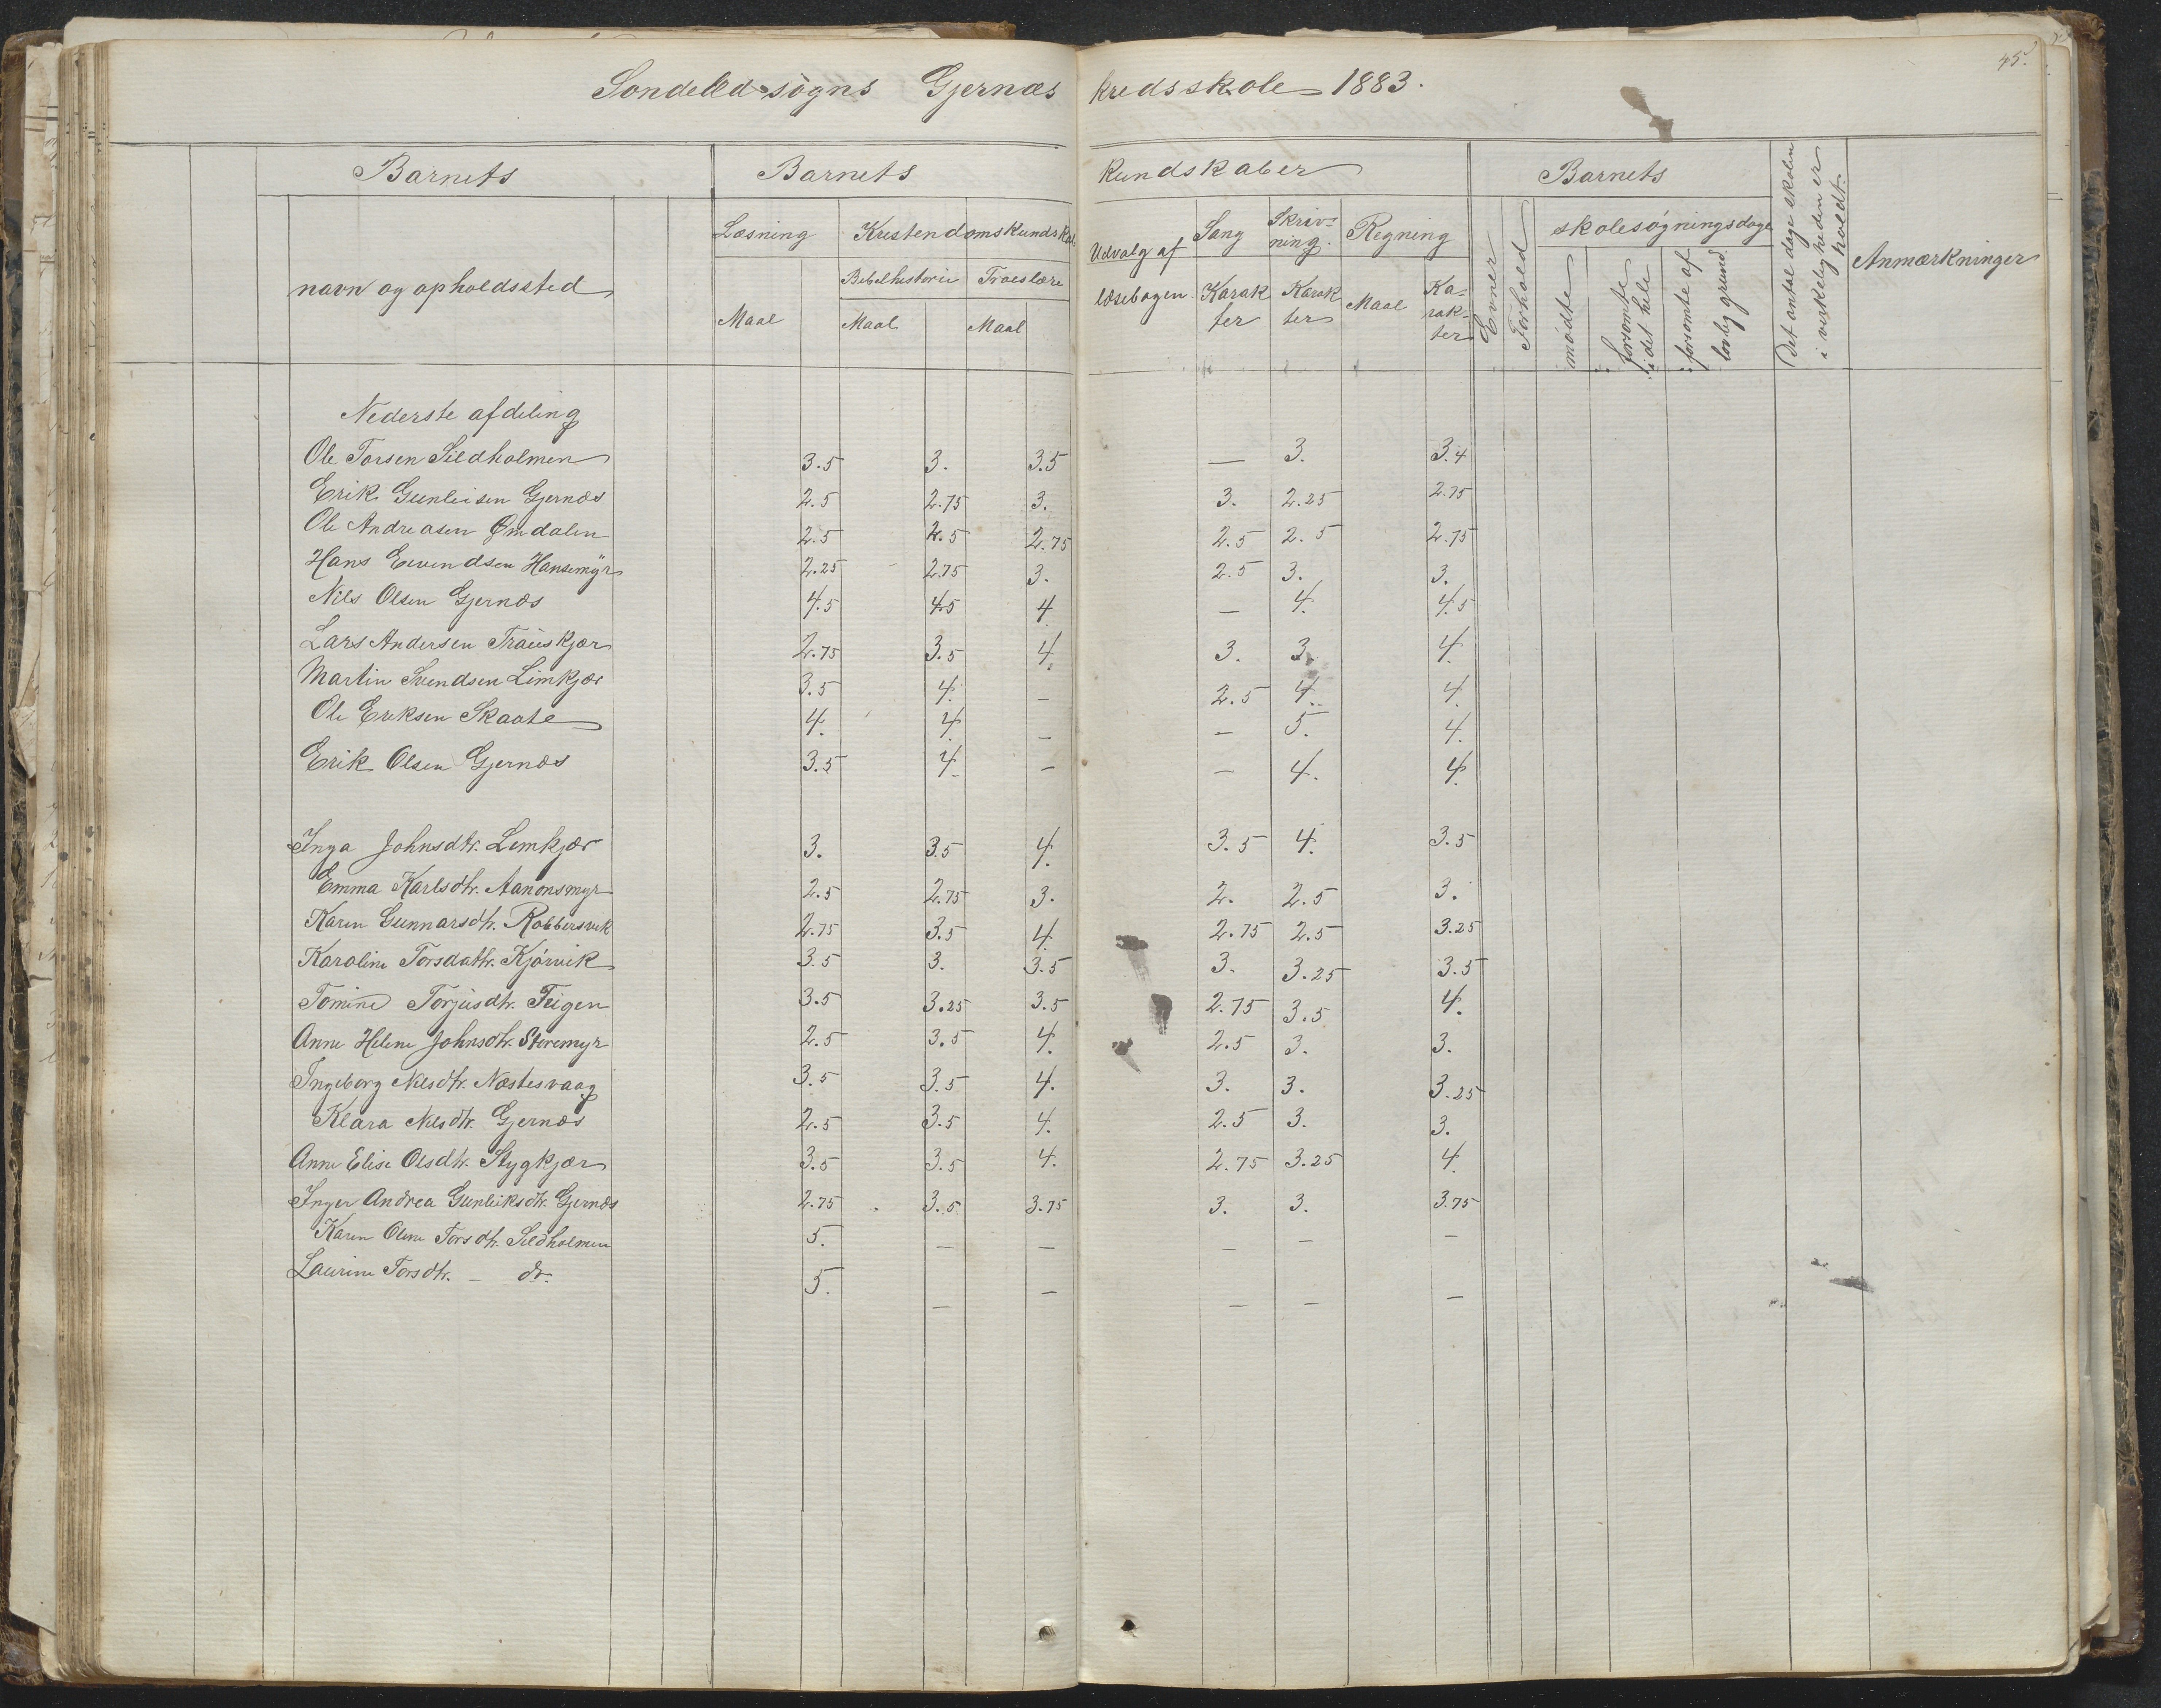 45.
Sondeled sogns Gjernæs kredsskole 1883.
Barnets Barnets kundskaber Barnets
navn og opholdssted
Læsning Kristendomskundskab
Bibelhistorie Troeslære
Maal Maal Maal
Udvalg af læsebogen
Sang Skrivning Regning
Karakter Karakter Maal Karakter
Evner
Forhold
skolesøgningsdage
mødte
forsømte i det hele
forsømte af lovlig grund
Det antal dage skolen i virkeligheden er holdt.
Anmærkninger
Nederste afdeling
Ole Torsen Sildholmen 3.5 3. 3.5 — 3. 3.4
Erik Gunleisen Gjernæs 2.5 2.75 3. 3. 2.25 2.75
Ole Andreasen Ømdalen 2.5 2.5 2.75 2.5 2.5 2.75
Hans Eivendsen Hansemyr 2.25 2.75 3. 2.5 3. 3.
Nils Olsen Gjernæs 4.5 4.5 4. — 4. 4.5
Lars Andersen 2.75 3.5 4. 3. 3. 4.
Martin Svendsen Limkjær 3.5 4. — 2.5 4. 4.
Ole Eriksen Skaate 4. 4. — — 5. 4.
Erik Olsen Gjernæs 3.5 4. — — 4. 4.
Inga Johnsdtr. Limkjær 3. 3.5 4. 3.5 4. 3.5
Emma Karlsdtr. Aanonsmyr 2.5 2.75 3. 2. 2.5 3.
Karen Gunnarsdtr. Robbersvik 2.75 3.5 4. 2.75 2.5 3.25
Karoline Torsdattr. Kjørvik 3.5 3. 3.5 3. 3.25 3.5
Tomine Torjusdtr. Feigen 3.5 3.25 3.5 2.75 3.5 4.
Anne Helene Johnsdtr. Storemyr 2.5 3.5 4. 2.5 3. 3.
Ingeborg Nilsdtr. Næstesvaag 3.5 3.5 4. 3. 3. 3.25
Klara Nilsdtr. Gjernæs 2.5 3.5 4. 2.5 3. 3.
Anne Elise Olsdtr. Stygkjær 3.5 3.5 4. 2.75 3.25 4.
Inger Andrea Gunleiksdtr. Gjernæs 2.75 3.5 3.75 3. 3. 3.75
Karen Oline Torsdtr. Sildholmen 5. — — — — —
Laurine Torsdtr. — do. 5. — — — — —